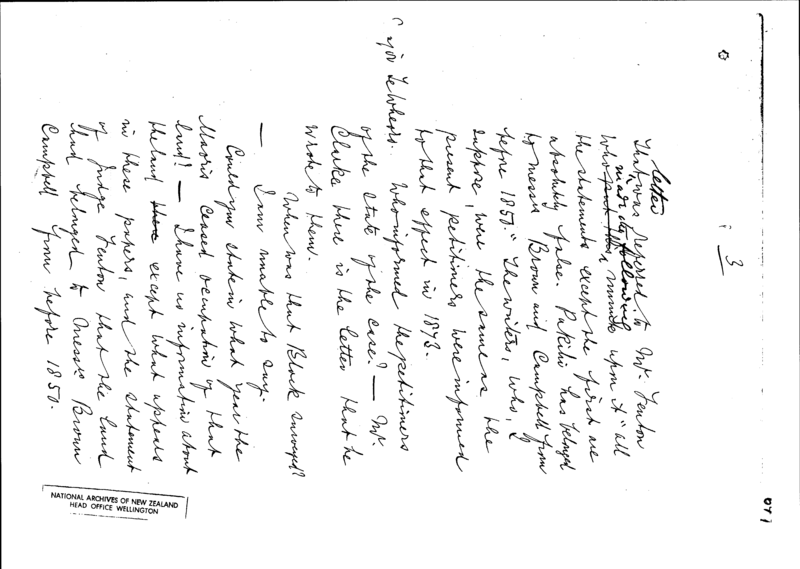 3
letter
That was referred to Mr. Fenton
who put this a minute upon it "all
made the following
the statements except the first are
absolutely false. Pukihi has belonged
to Messrs Brown and Campbell from
before 1850." The writers, who, I
suppose, were the same as the
present petitioners were informed
to that effect in 1873.
Te Wheoro. Who informed the petitioners
of the state of the case? — Mr.
Clarke there is the letter that he
wrote to them.
When was that Block surveyed?
— I am unable to say.
Could you state in what year the
Maoris ceased occupation of that
land? — I have no information about
the land except what appears
in these papers, and the statement
of Judge Fenton that the land
had belonged to Messrs Brown
Campbell from before 1850.
NATIONAL ARCHIVES OF NEW ZEALAND
HEAD OFFICE WELLINGTON